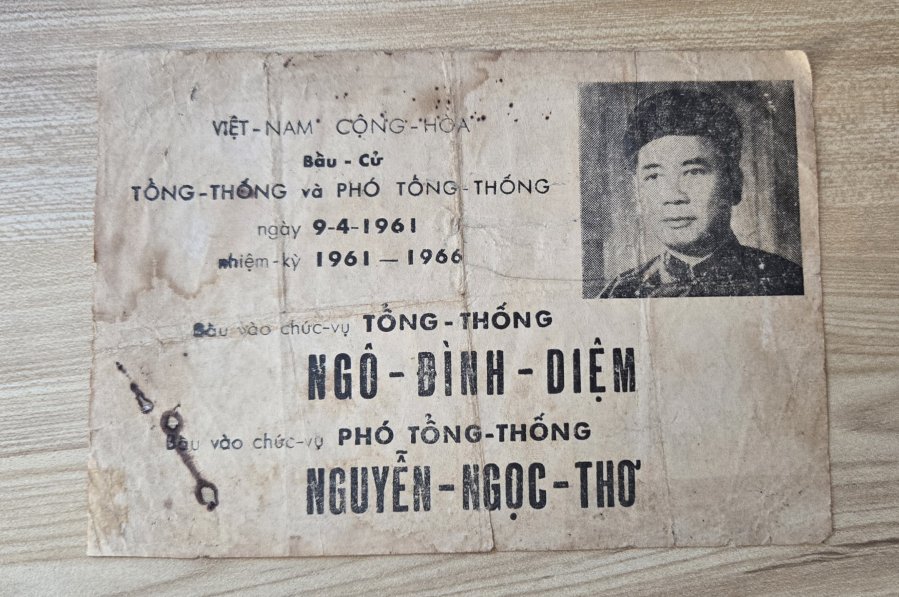 VIỆT-NAM CỘNG-HÒA
Bầu - Cử
TỔNG-THỐNG và PHÓ TỔNG-THỐNG
ngày 9-4-1961
nhiệm-kỳ 1961 — 1966
Bầu vào chức-vụ TỔNG-THỐNG
NGÔ-ĐÌNH-DIỆM
Bầu vào chức-vụ PHÓ TỔNG-THỐNG
NGUYỄN-NGỌC-THƠ